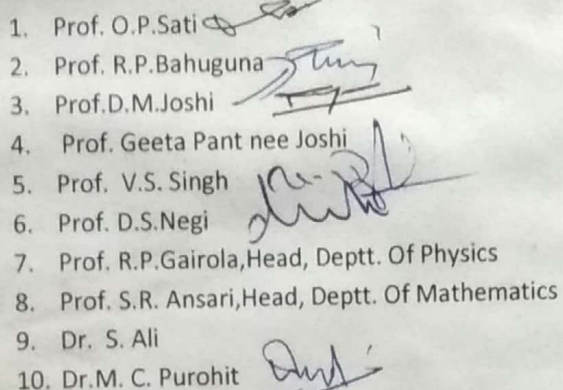 1. Prof. O.P.Sati
2. Prof. R.P.Bahuguna
3. Prof.D.M.Joshi
4. Prof. Geeta Pant nee Joshi
5. Prof. V.S. Singh
6. Prof. D.S.Negi
7. Prof. R.P.Gairola,Head, Deptt. Of Physics
8. Prof. S.R. Ansari,Head, Deptt. Of Mathematics
9. Dr. S. Ali
10. Dr.M. C. Purohit